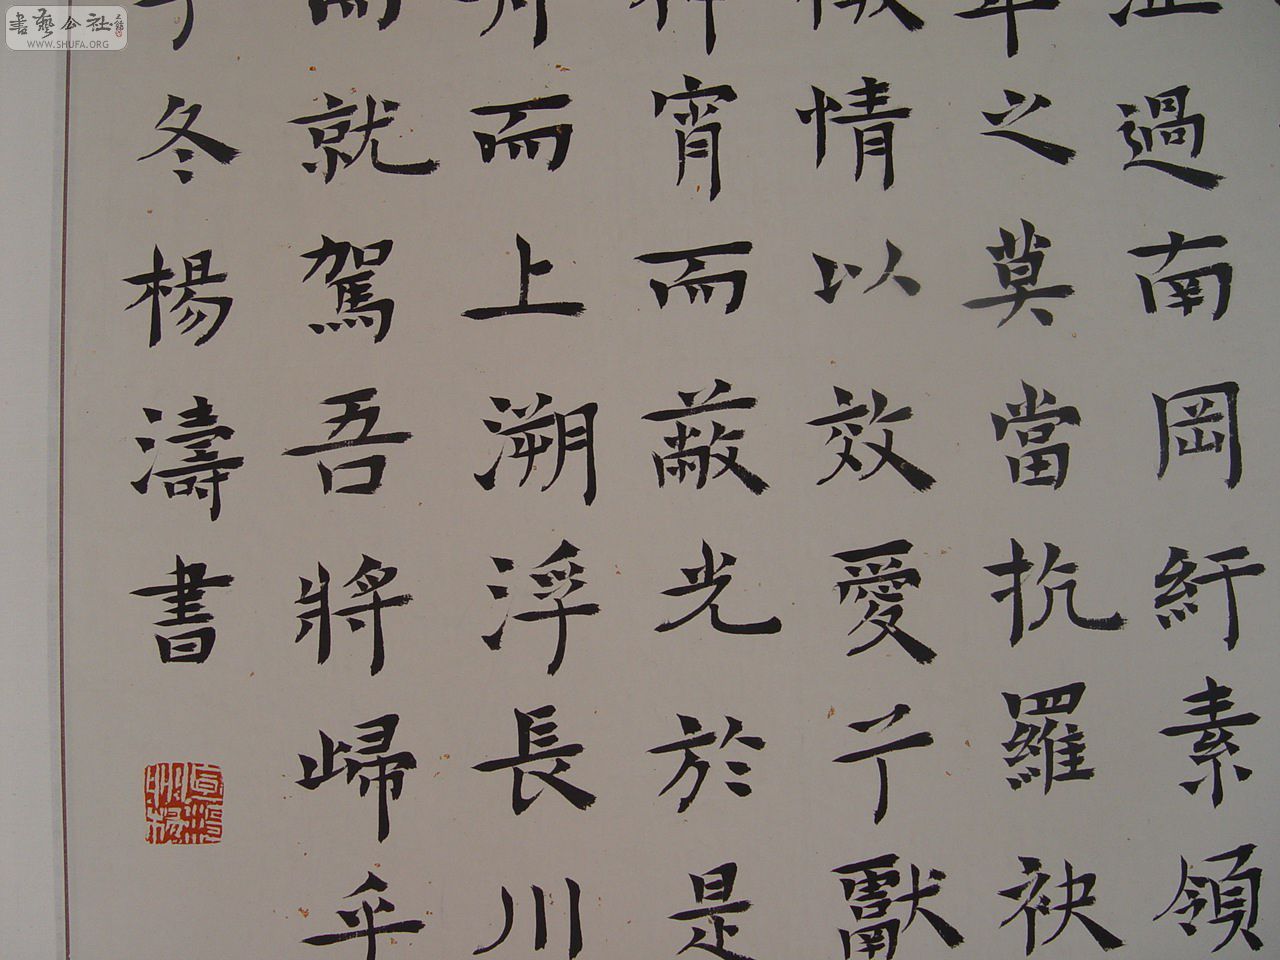 沚過南岡紆素領
年之莫當抗羅袂
微情以效愛兮獻
神宵而蔽光於是
舟而上溯浮長川
而就駕吾將歸乎
冬楊濤書
書藝公社
WWW.SHUFA.ORG